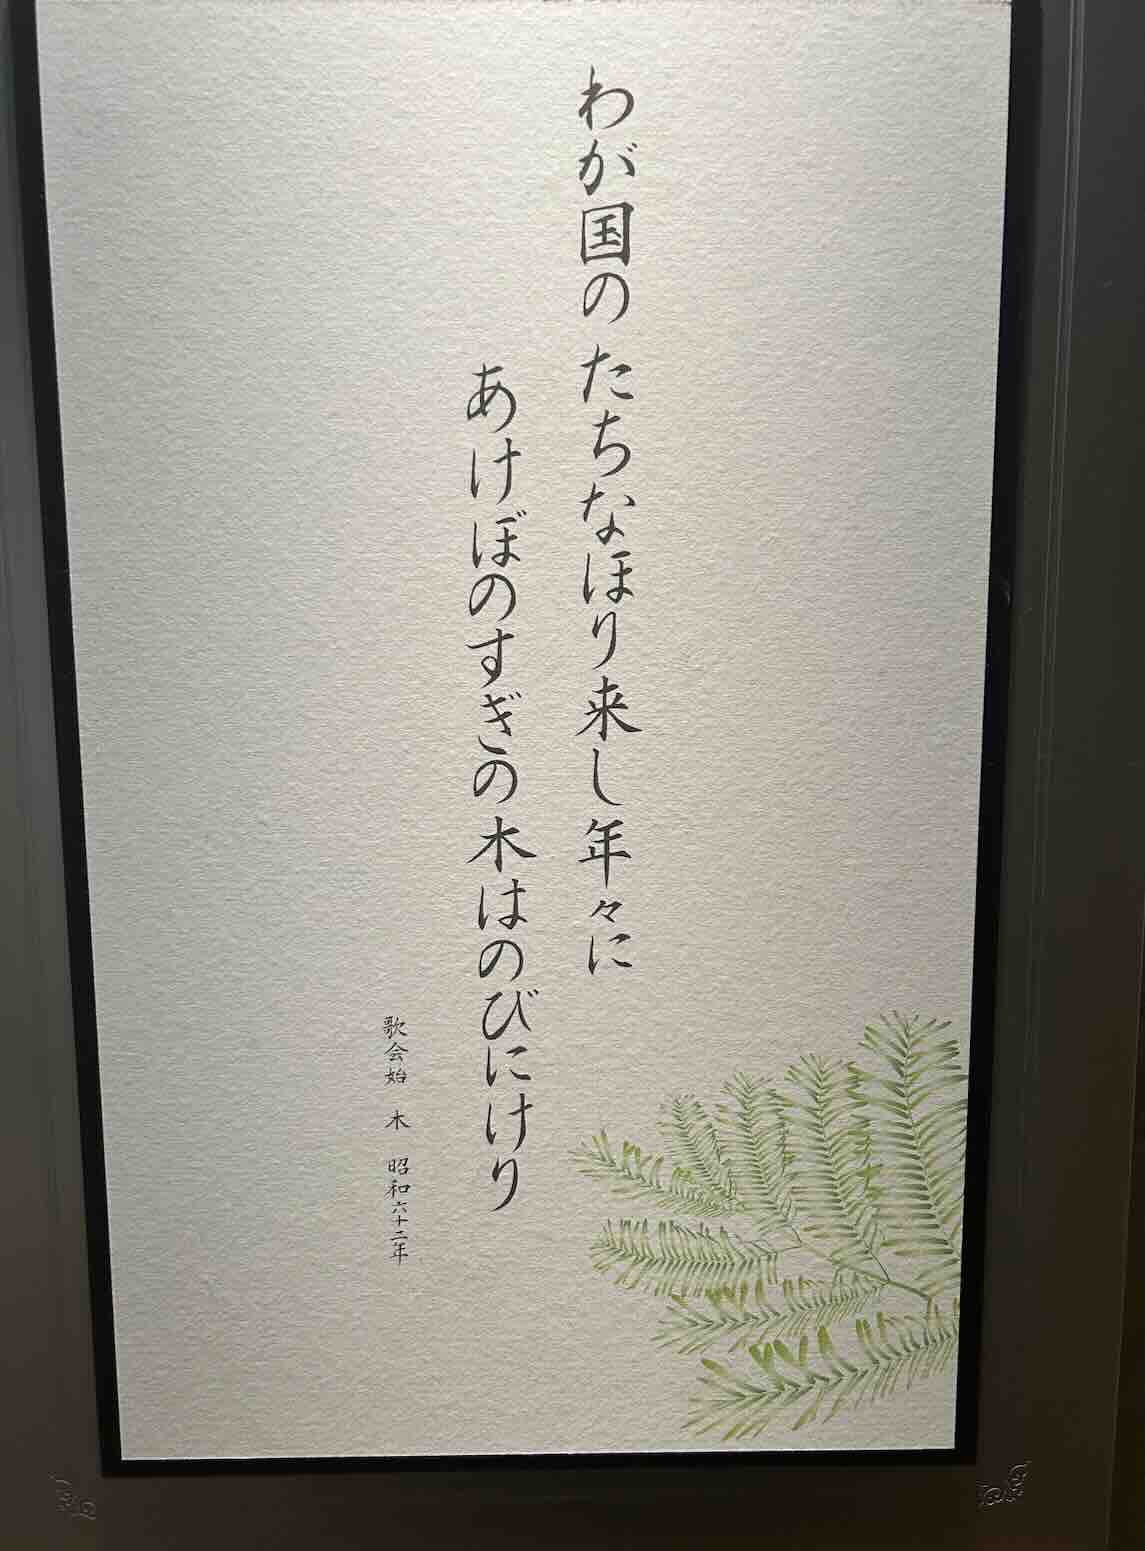 わが国の たちなほり来し年々に
あけぼのすぎの木はのびにけり
歌会始 木 昭和六十二年